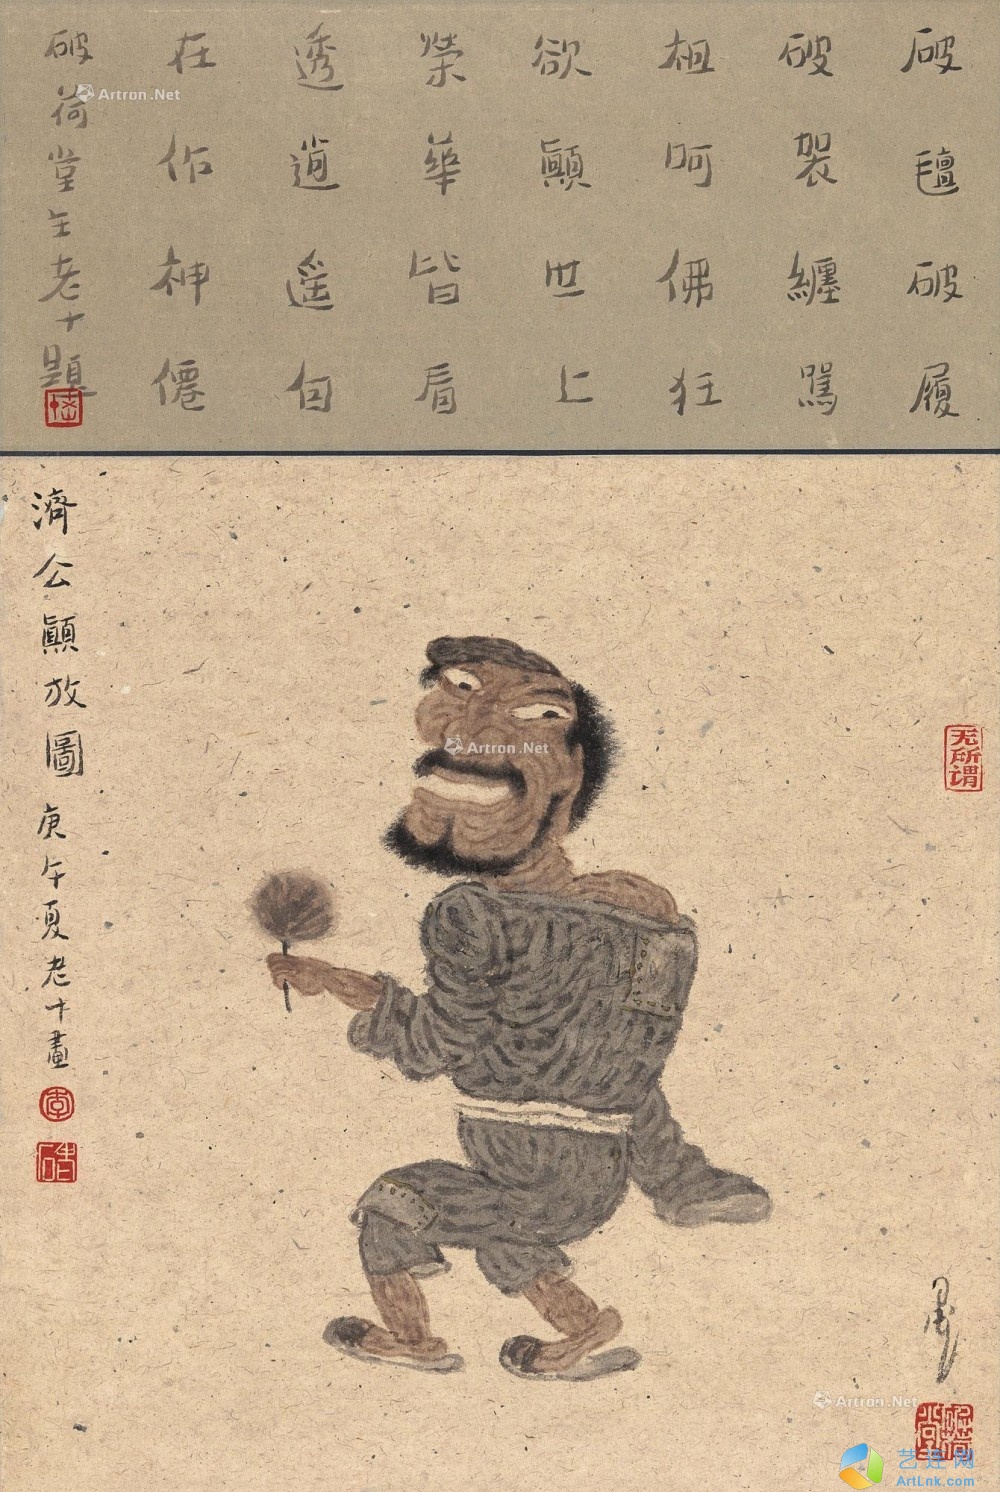 破氈破履
破袈纏駡
祖呵佛狂
欲顛世上
榮華皆看
透逍遥自
在作神僊
破荷堂主老十題
濟公顛放圖 庚午夏老十畫
无所谓
李
Artron.Net
Artron.Net
Artron.Net
破荷堂
艺连网
ArtLnk.com